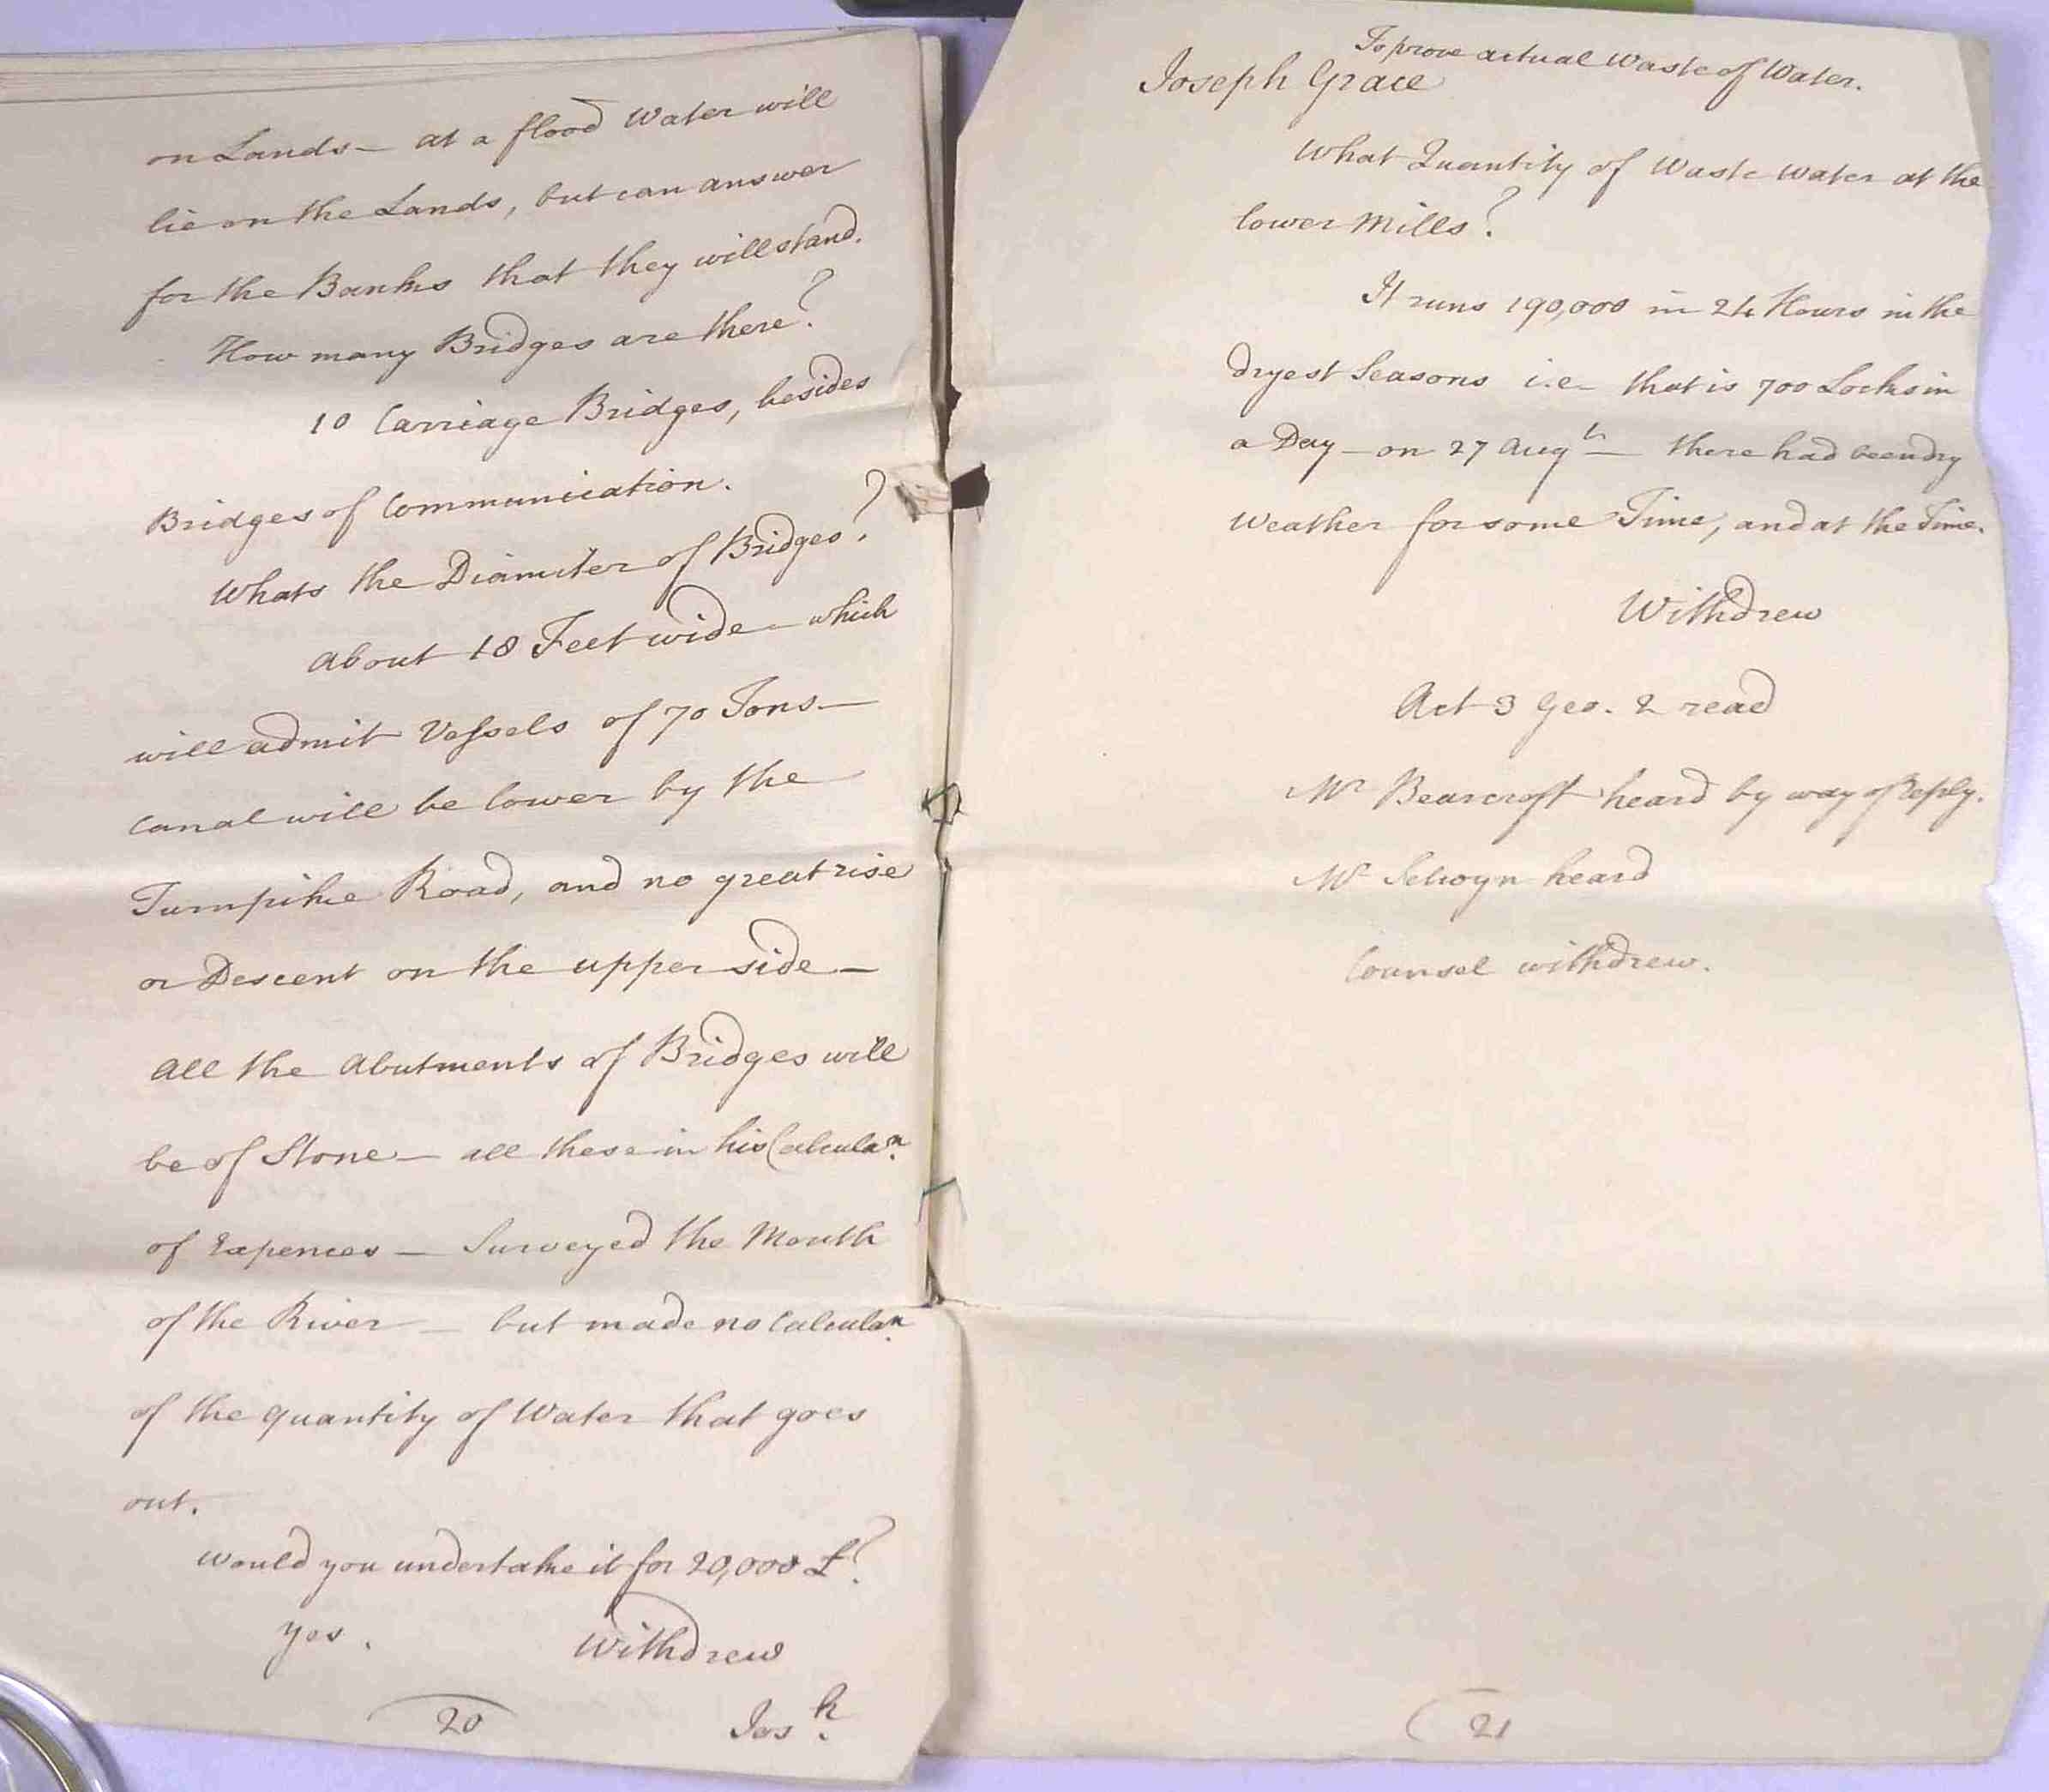 on Lands — at a flood Water will
lie on the Lands, but can answer
for the Banks that they will stand.
How many Bridges are there?
10 Carriage Bridges, besides
Bridges of Communication.
Whats the Diamiter of Bridges?
About 18 Feet wide — which
will admit Vessels of 70 Tons —
Canal will be lower by the
Turnpike Road, and no great rise
or Descent on the upper side —
All the Abutments of Bridges will
be of Stone — all these in his Calculan.
of Expences — Surveyed the Mouth
of the River — but made no Calculan.
of the quantity of Water that goes
out.
Would you undertake it for 20,000 £?
Yes. Withdrew
20 Josh.
To prove actual Waste of Water.
Joseph Grace
What Quantity of Waste Water at the
lower Mills?
It runs 190,000 in 24 Hours in the
dryest Seasons i.e. that is 700 Locks in
a Day — on 27 Augt — there had been dry
Weather for some Time, and at the Time.
Withdrew
Act 3 Geo. 2 read
Mr Bearcroft heard by way of Reply.
Mr Selwyn heard
Counsel withdrew.
21